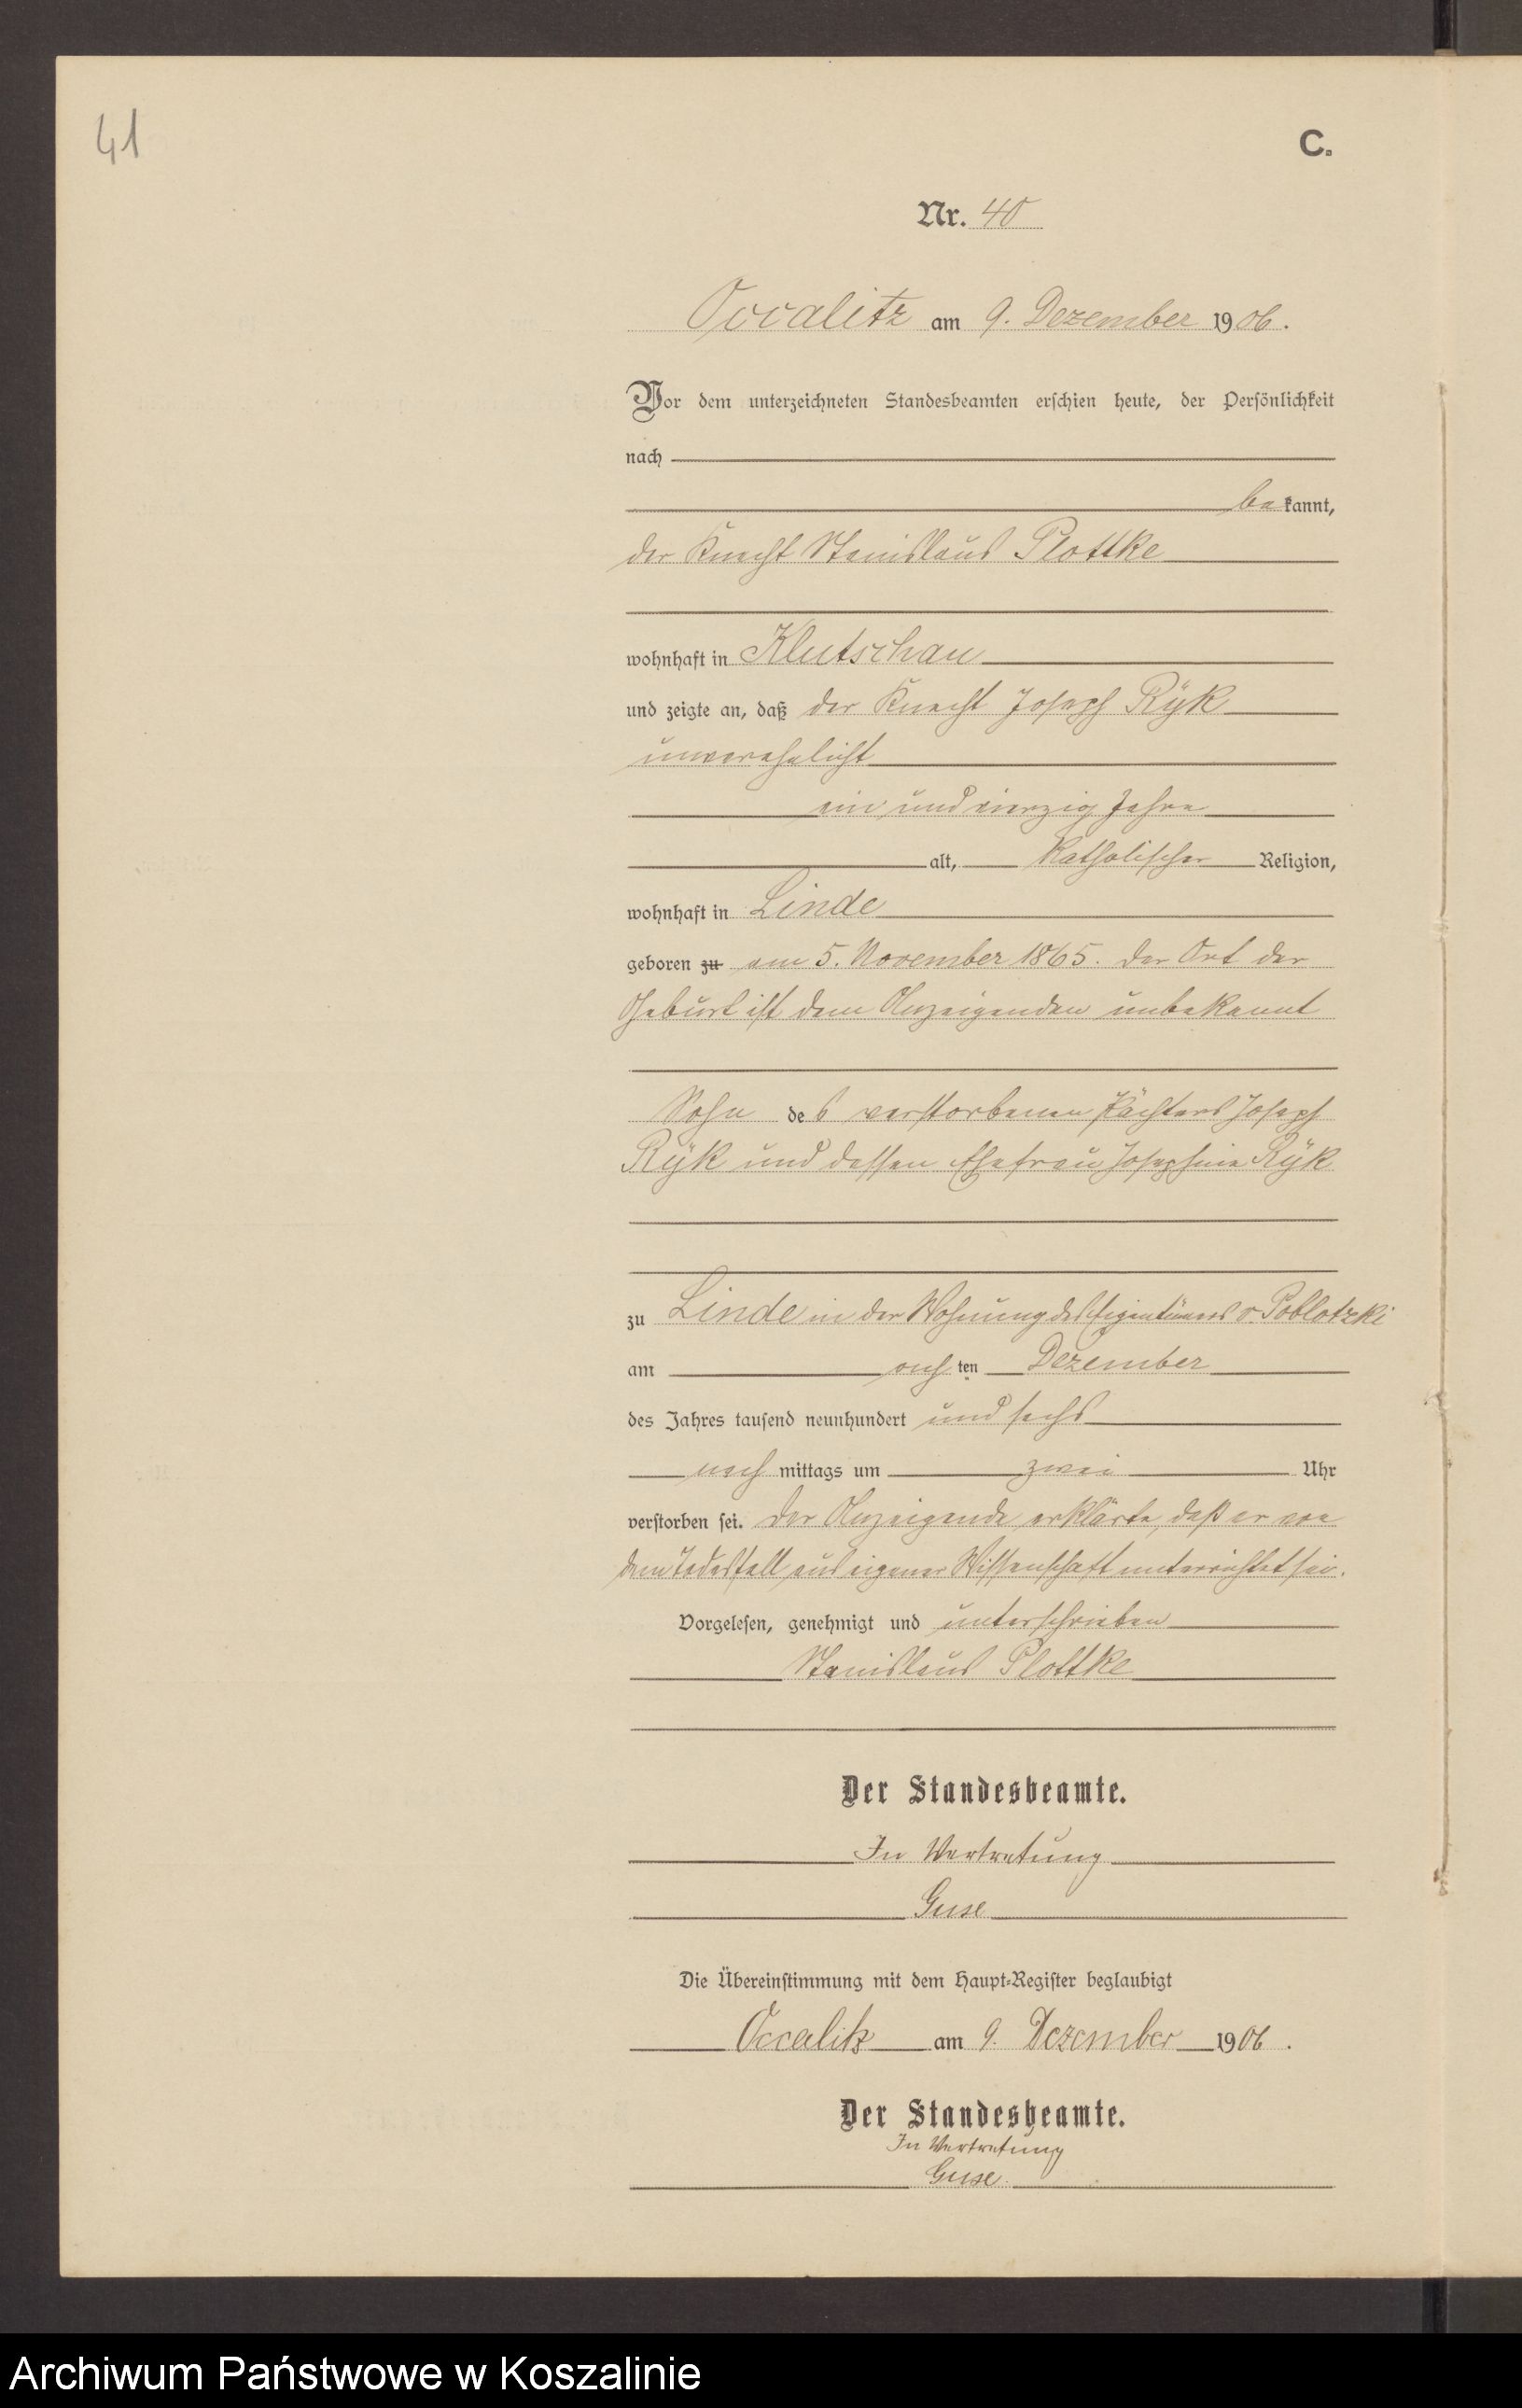 41
C.
Nr. 40
Occalitz am 9. Dezember 1906.
Vor dem unterzeichneten Standesbeamten erschien heute, der Persönlichkeit
nach
bekannt,
der Knecht Stanislaus Plottke
wohnhaft in Klutschau
und zeigte an, daß der Knecht Joseph Rÿk
unverehelicht
ein und vierzig Jahre
alt, katholischer Religion,
wohnhaft in Linde
geboren zu am 5. November 1865. Der Ort der
Geburt ist dem Anzeigenden unbekannt
Sohn des verstorbenen Pächters Joseph
Rÿk und dessen Ehefrau Josephine Rÿk
zu Linde in der Wohnung des Eigentümers v. Poblotzki
am achten Dezember
des Jahres tausend neunhundert und sechs
nachmittags um zwei Uhr
verstorben sei. Der Anzeigende erklärte, daß er von
dem Todesfall aus eigener Wissenschaft unterrichtet sei.
Vorgelesen, genehmigt und unterschrieben
Stanislaus Plottke
Der Standesbeamte.
In Vertretung
Guse
Die Übereinstimmung mit dem Haupt-Register beglaubigt
Occalitz am 9. Dezember 1906.
Der Standesbeamte.
In Vertretung
Guse.
Archiwum Państwowe w Koszalinie